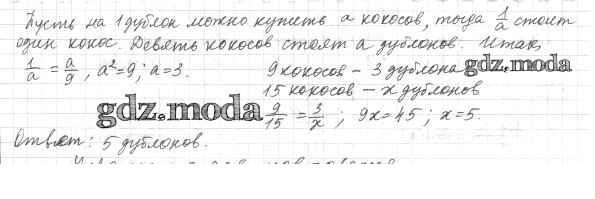 Пусть на 1 дублон можно купить a кокосов, тогда 1/a стоит
один кокос. Девять кокосов стоят a дублонов. Итак,
1/a = a/9; a²=9; a=3. 9 кокосов – 3 дублона gdz.moda
15 кокосов – x дублонов
gdz.moda 9/15 = 3/x; 9x=45; x=5.
Ответ: 5 дублонов.